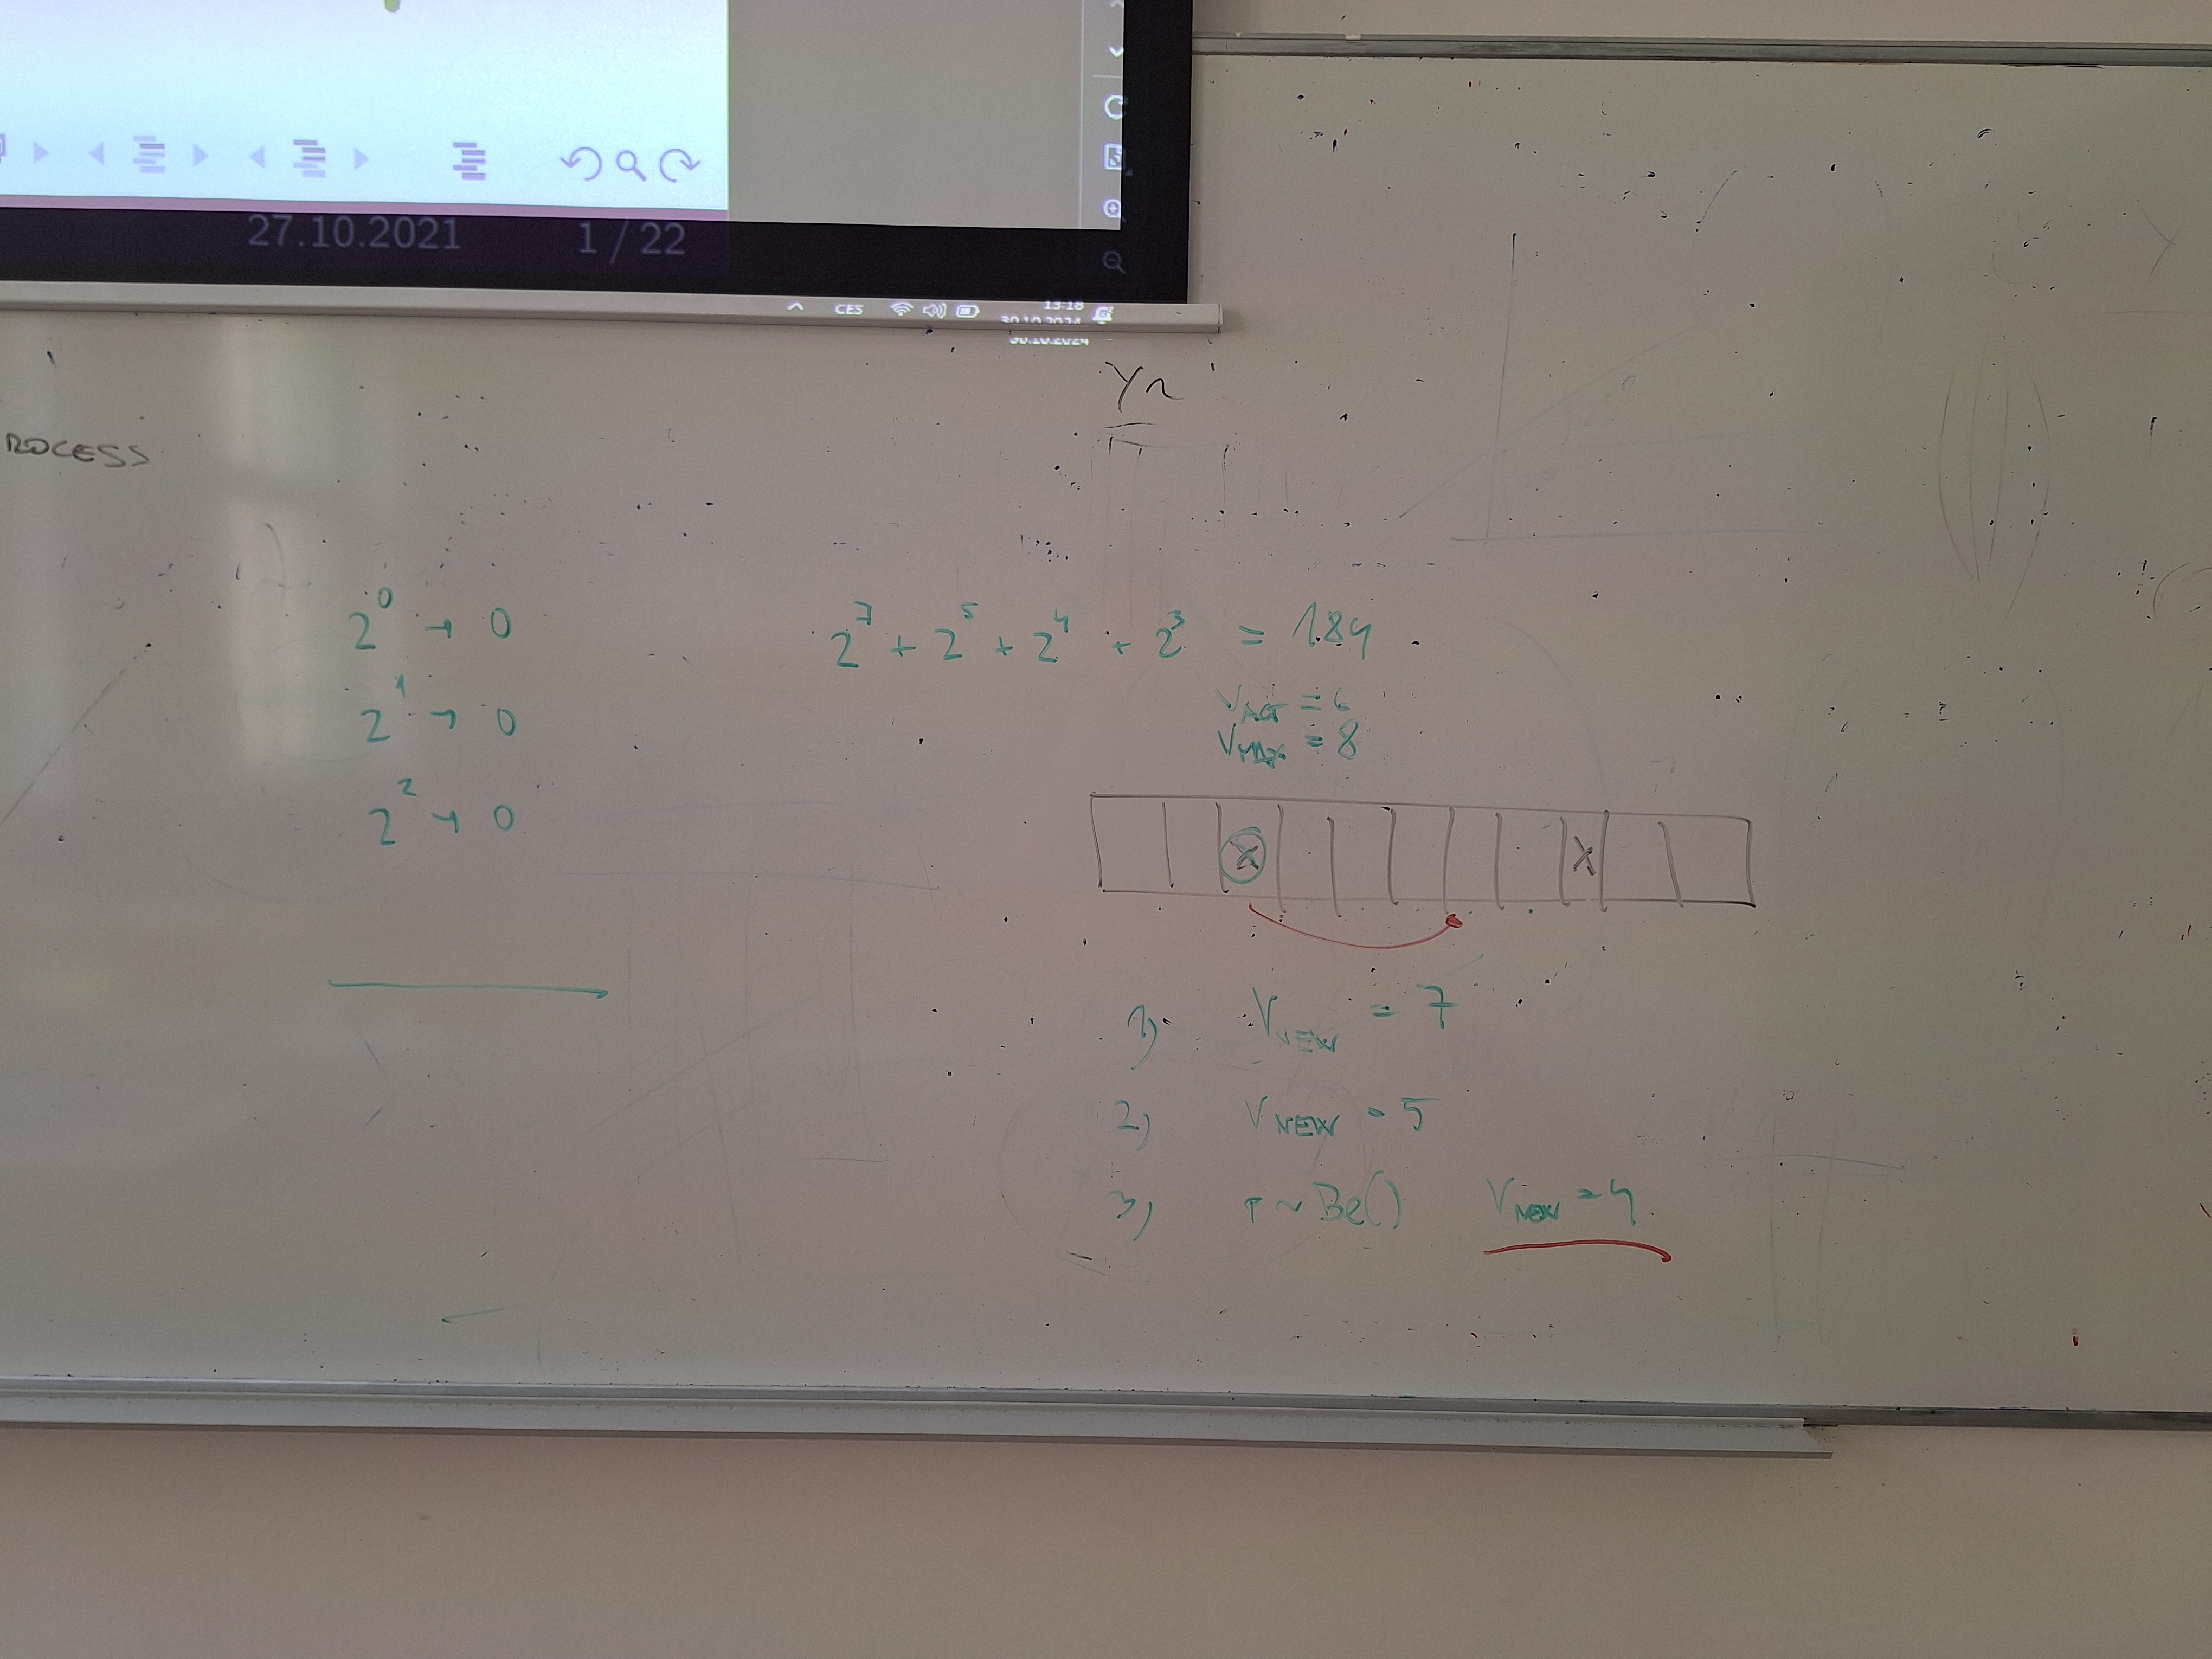 27.10.2021 1 / 22
CES 13:18
30.10.2024
30.10.2024
Yn
ROCESS
2^0 → 0
2^1 → 0
2^2 → 0
2^7 + 2^5 + 2^4 + 2^3 = 184
V_ACT = 6
V_MAX = 8
X X
1) V_NEW = 7
2) V_NEW = 5
3) P ~ Be() V_NEW = 4